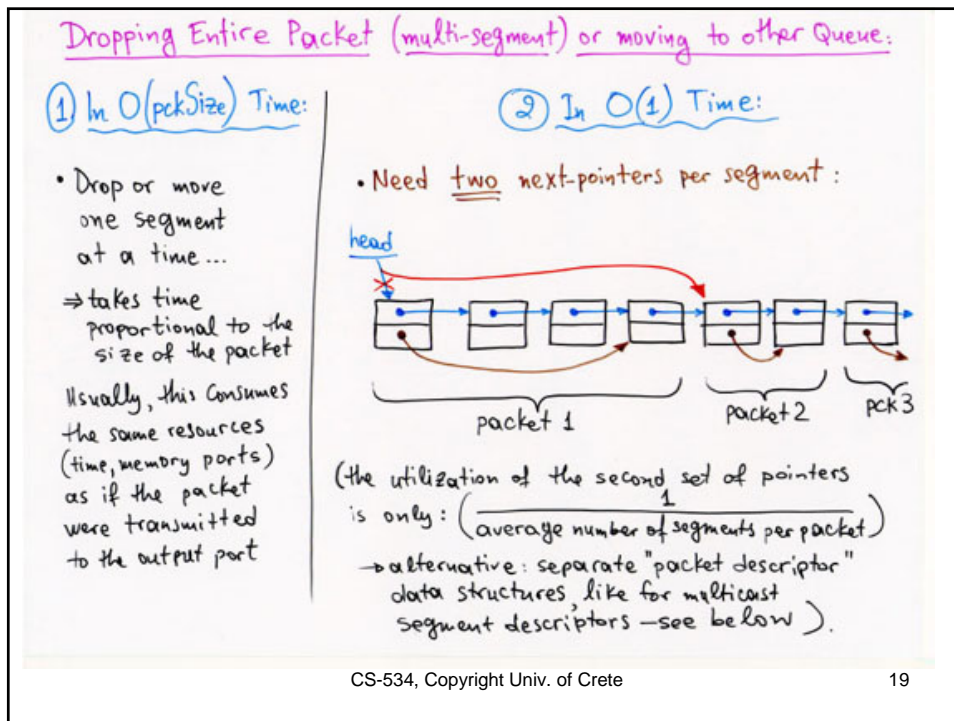 Dropping Entire Packet (multi-segment) or moving to other Queue:
① In O(pckSize) Time:
• Drop or move
one segment
at a time...
⇒ takes time
proportional to the
size of the packet
Usually, this consumes
the same resources
(time, memory ports)
as if the packet
were transmitted
to the output port
② In O(1) Time:
• Need two next-pointers per segment:
head
packet 1
packet 2
pck 3
(the utilization of the second set of pointers
is only: (1 / average number of segments per packet)
→ alternative: separate "packet descriptor"
data structures, like for multicast
segment descriptors – see below).
CS-534, Copyright Univ. of Crete
19